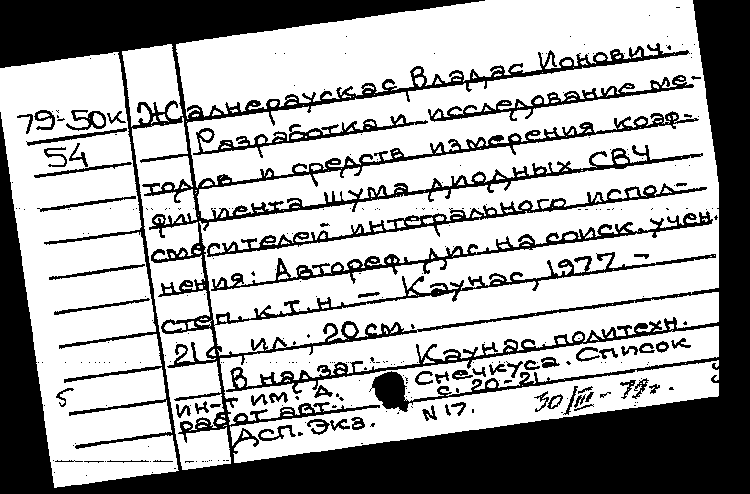 79-50к
54
Жалнераускас, Владас Ионович.
Разработка и исследование ме-
тодов и средств измерения коэф-
фициента шума диодных СВЧ
смесителей интегрального испол-
нения: Автореф. дис. на соиск. учен.
степ. к.т.н. — Каунас, 1977. —
21 с., ил.; 20 см.
В надзаг.: Каунас. политехн.
ин-т им. А. Снечкуса. Список
работ авт.: с. 20-21.
Дсп. Экз. N 17. 30/III-79г.
5